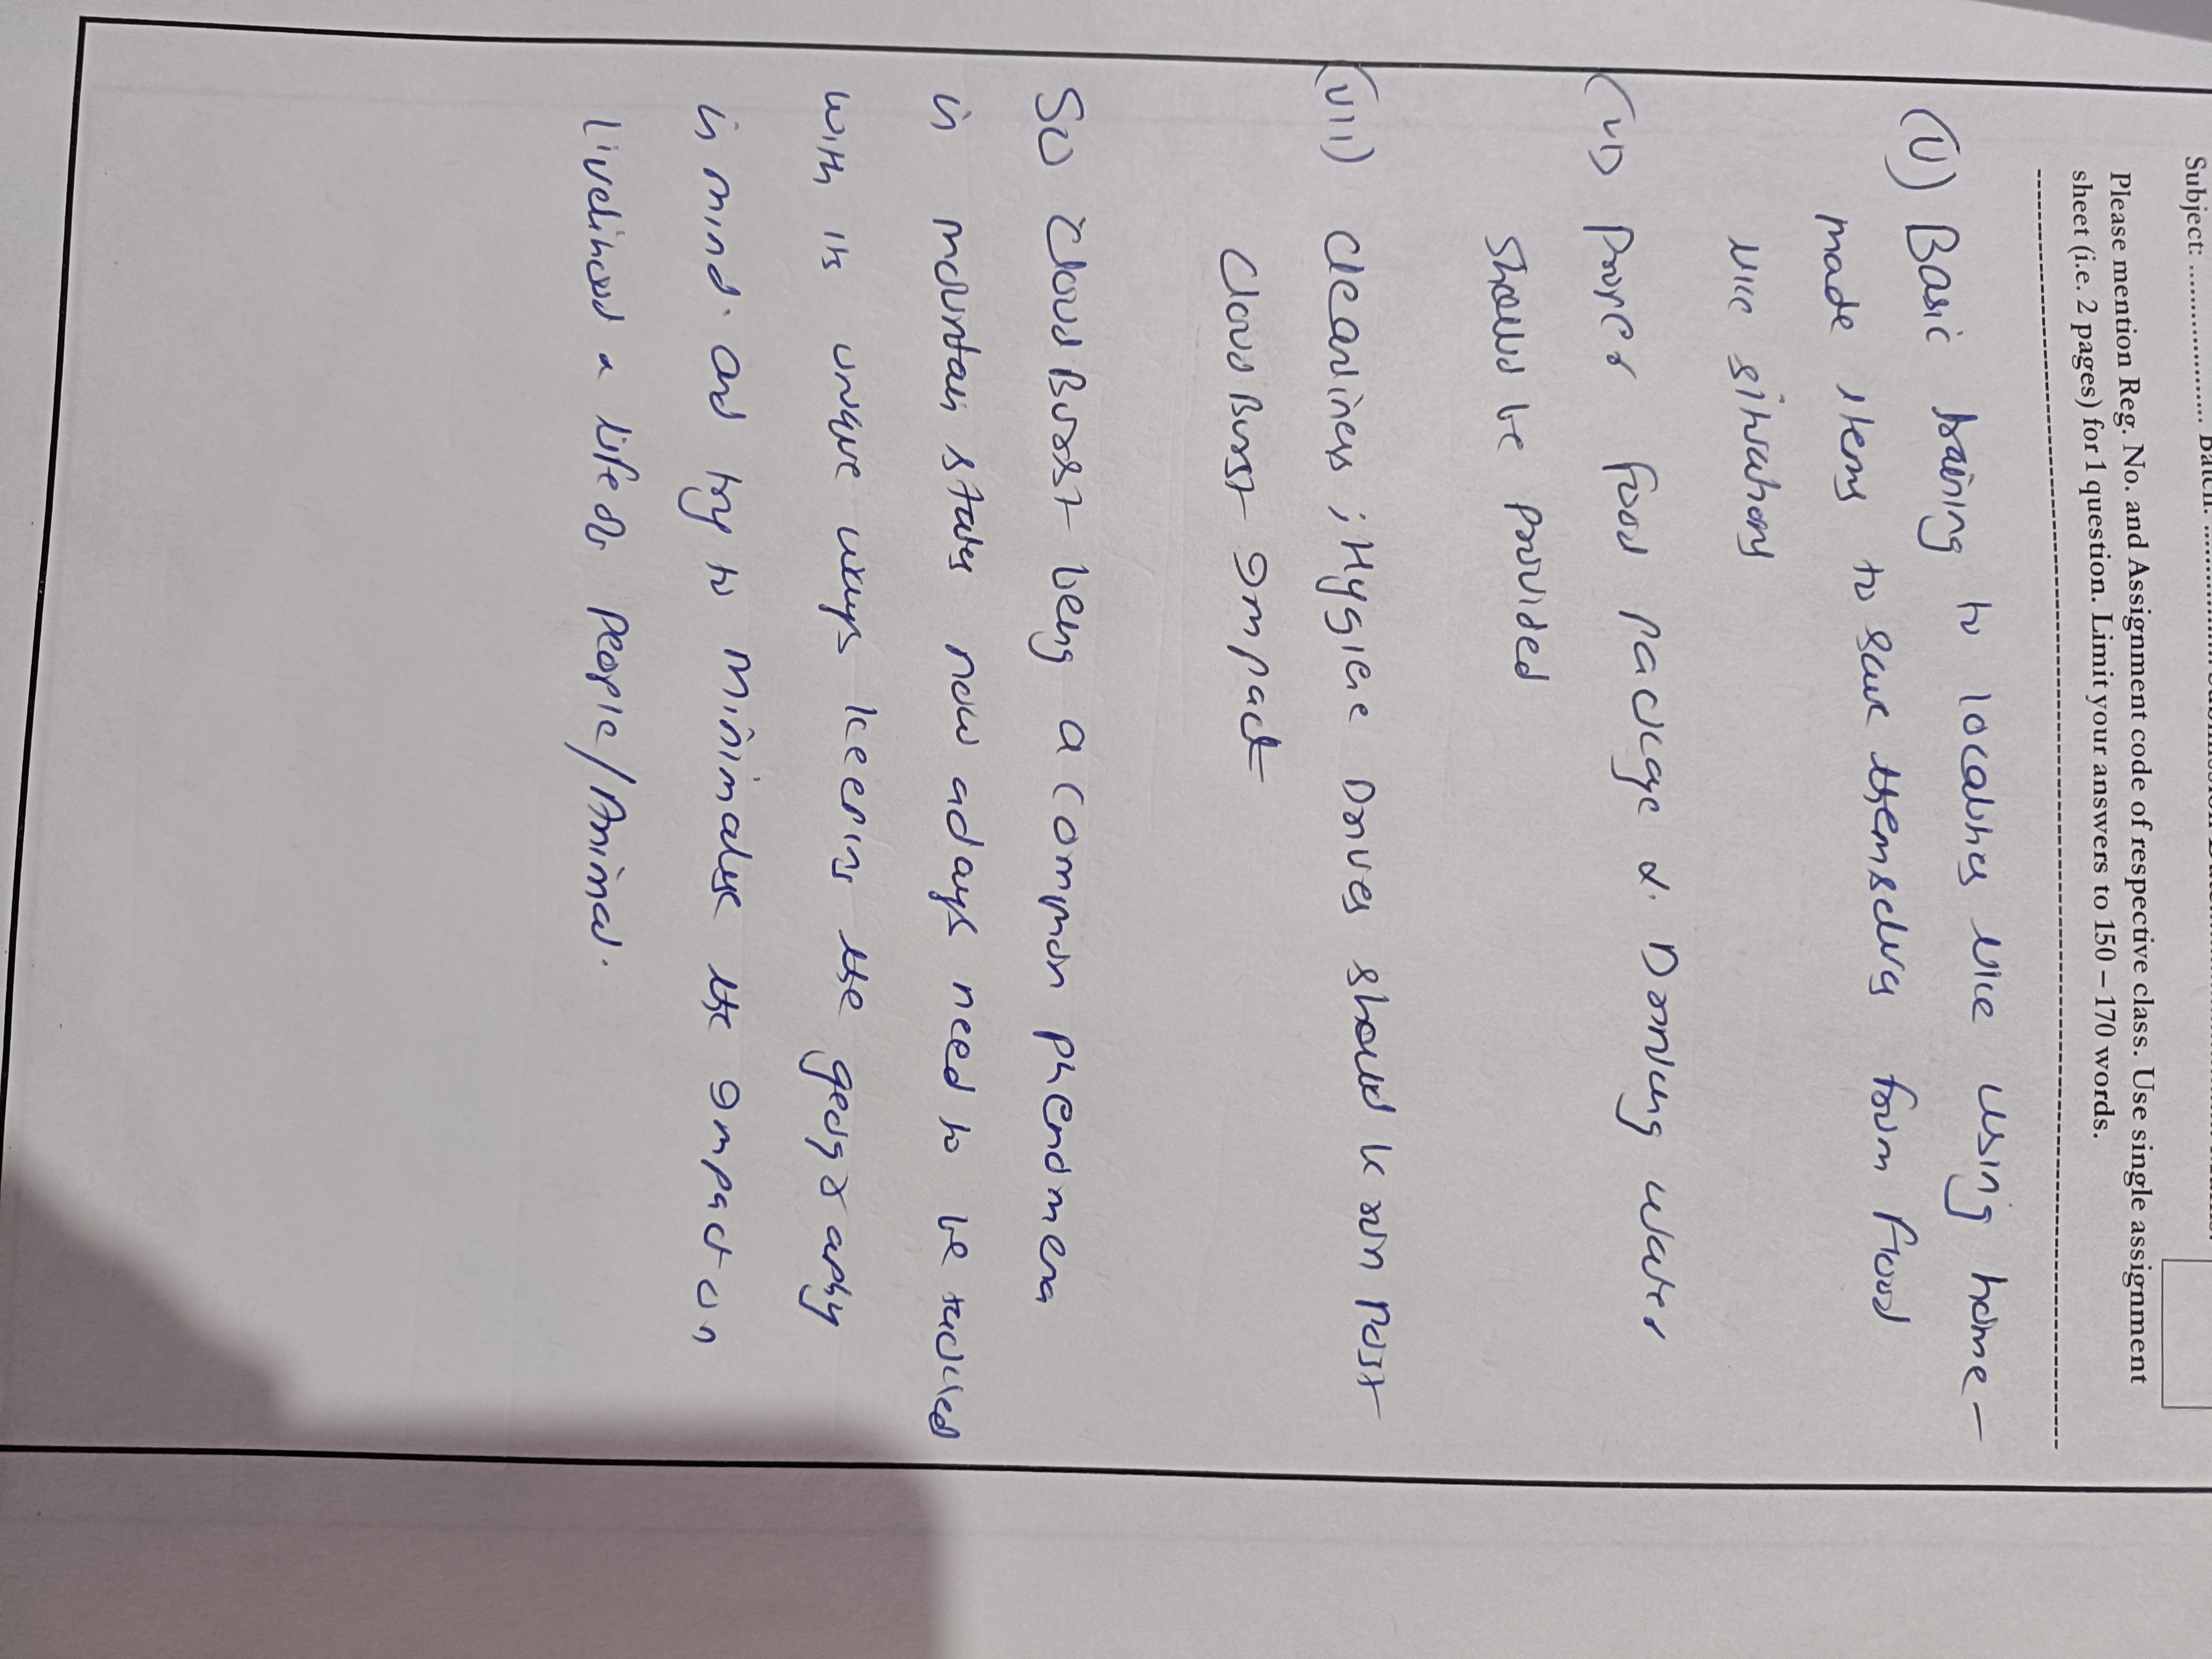 Subject: .................... Batch: ....................
Please mention Reg. No. and Assignment code of respective class. Use single assignment
sheet (i.e. 2 pages) for 1 question. Limit your answers to 150 – 170 words.
(V) Basic training to localities like using home-
made items to save themselves from flood
like situations
(VI) Proper food package & Drinking water
should be provided
(VII) Cleanliness ; Hygiene Drives should k run post
Cloud Burst Impact
So Cloud Burst being a common phenomena
in mountain states now adays need to be tackled
with its unique ways keeping the geography
in mind. and try to minimalise the Impact on
livelihood & life of people/Animal.